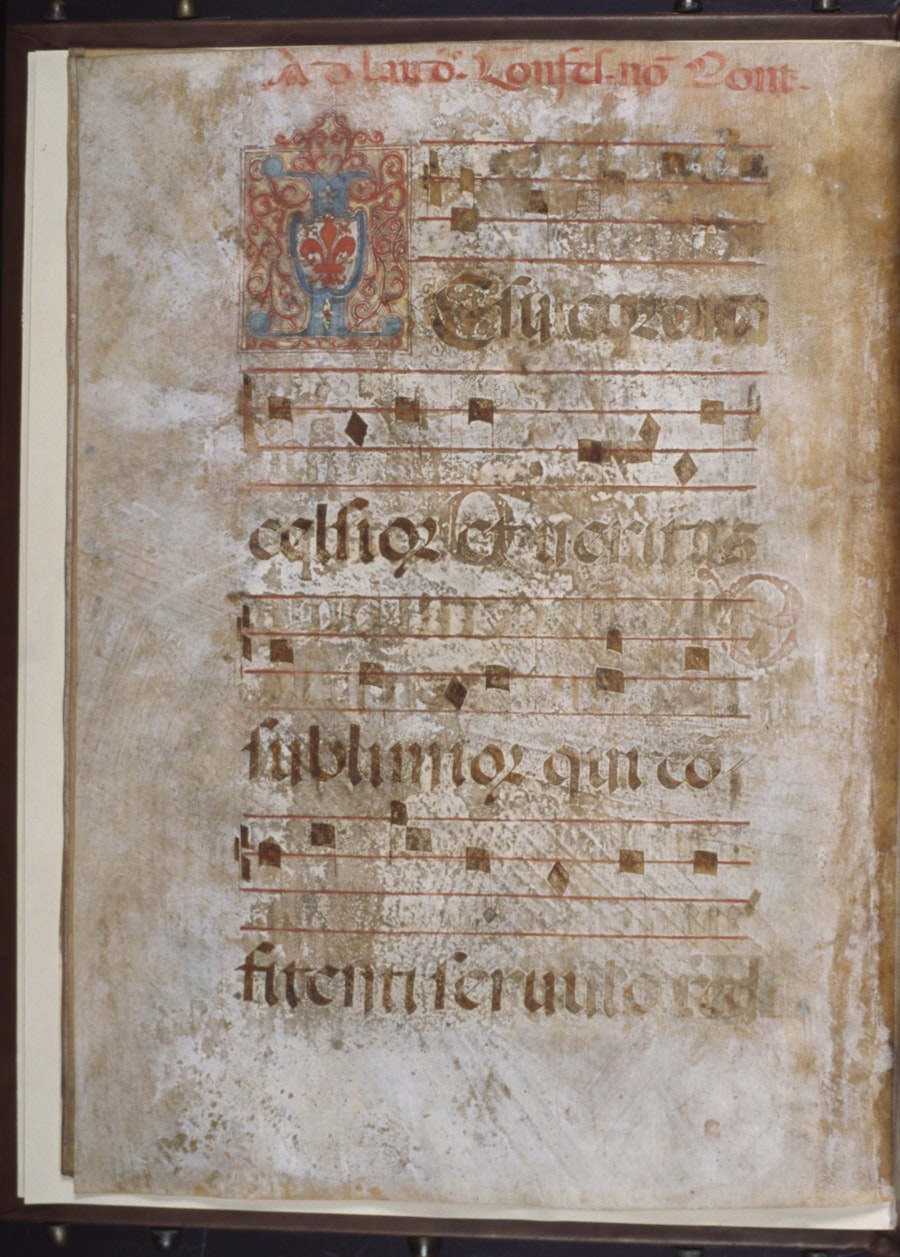 Ad laud̄. Confes. nō Pont.
IEsu corona
celsior Et ueritas
sublimior qui cō
fitenti seruulo red